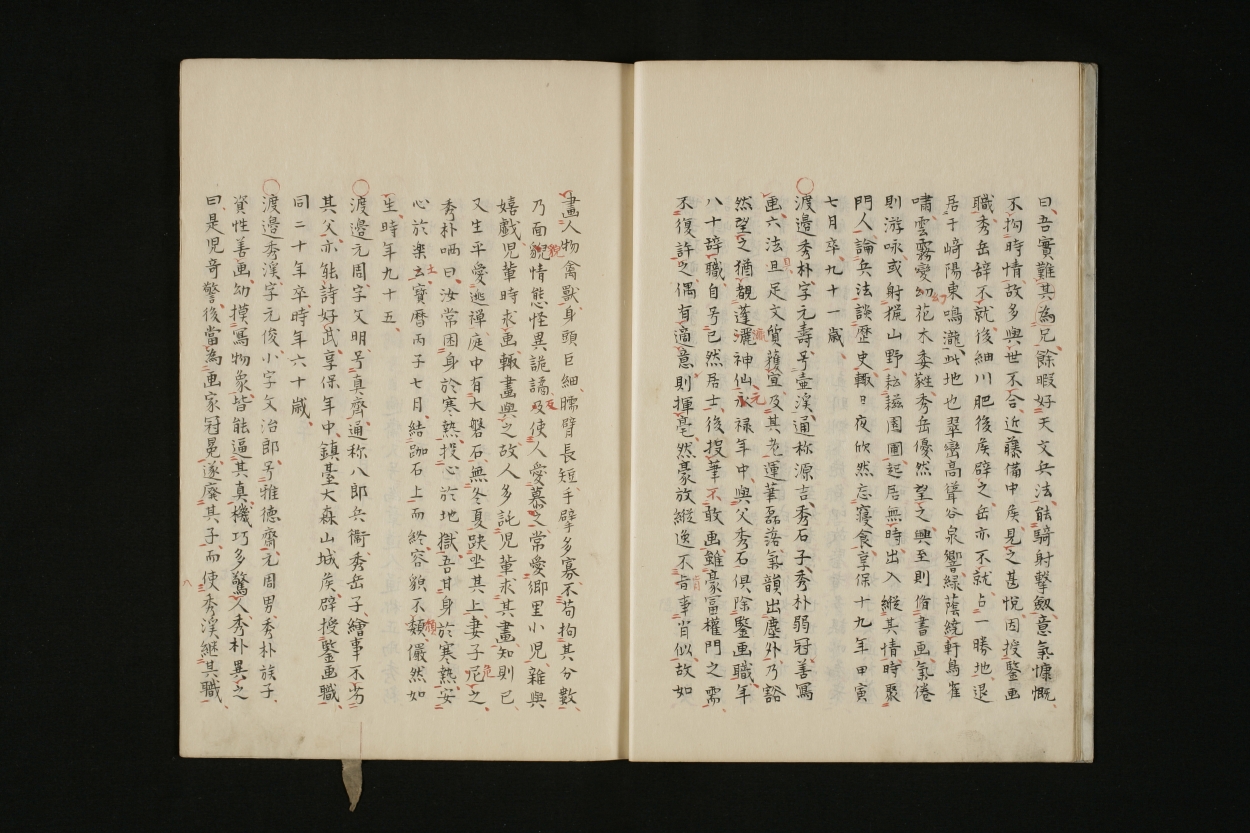 曰吾實難其為兄餘暇好天文兵法能騎射擊劔意氣慷慨
不拘時情故多與世不合近藤備中矦見之甚悦因授鑒画
職秀岳辞不就後細川肥後矦辟之岳亦不就占一勝地退
居于崎陽東鳴瀧此地也翠巒高聳谷泉響緑蔭繞軒鳥雀
嘯雲霧變幻花木委蕤秀岳優然望之興至則脩書画氣倦
則游咏或射猟山野耘耔園圃起居無時出入縦其情時聚
門人論兵法談歴史輙日夜欣然忘寝食享保十九年甲寅
七月卒九十一歳
渡邉秀朴字元壽号壷渓通称源吉秀石子秀朴弱冠善寫
画六法且足文質獲宜及其老運筆磊落氣韻出塵外乃豁
然望之猶覩蓬灑神仙永禄年中與父秀石俱除鑒画職年
八十辞職自号已然居士後投筆不敢画雖豪冨權門之需
不復許之偶有適意則揮毫然豪放縦逸不肯事肖似故如
畫人物禽獸身頭巨細臑臂長短手擘多寡不苟拘其分數
乃面貌情態怪異詭譎及使人愛慕之常愛郷里小児雜與
嬉戯児輩時求画輙畫與之故人多託児輩求其畫知則已
又生平愛逃禅庭中有大磐石無冬夏趺坐其上妻子危之
秀朴哂曰汝常困身於寒熱投心於地獄吾甘身於寒熱安
心於楽玄寳暦丙子七月結跏石上而終容貌不頽儼然如
生時年九十五
渡邉元周字文明号真齊通称八郎兵衞秀岳子繪事不劣
其父亦能詩好武享保年中鎮臺大森山城矦辟授鑒画職
同二十年卒時年六十歳
渡邉秀渓字元俊小字文治郎号雅徳齋元周男秀朴族子
資性善画幼摸寫物象皆能逼其真機巧多驚人秀朴異之
曰是児竒警後當為画家冠冕遂廢其子而使秀渓継其職